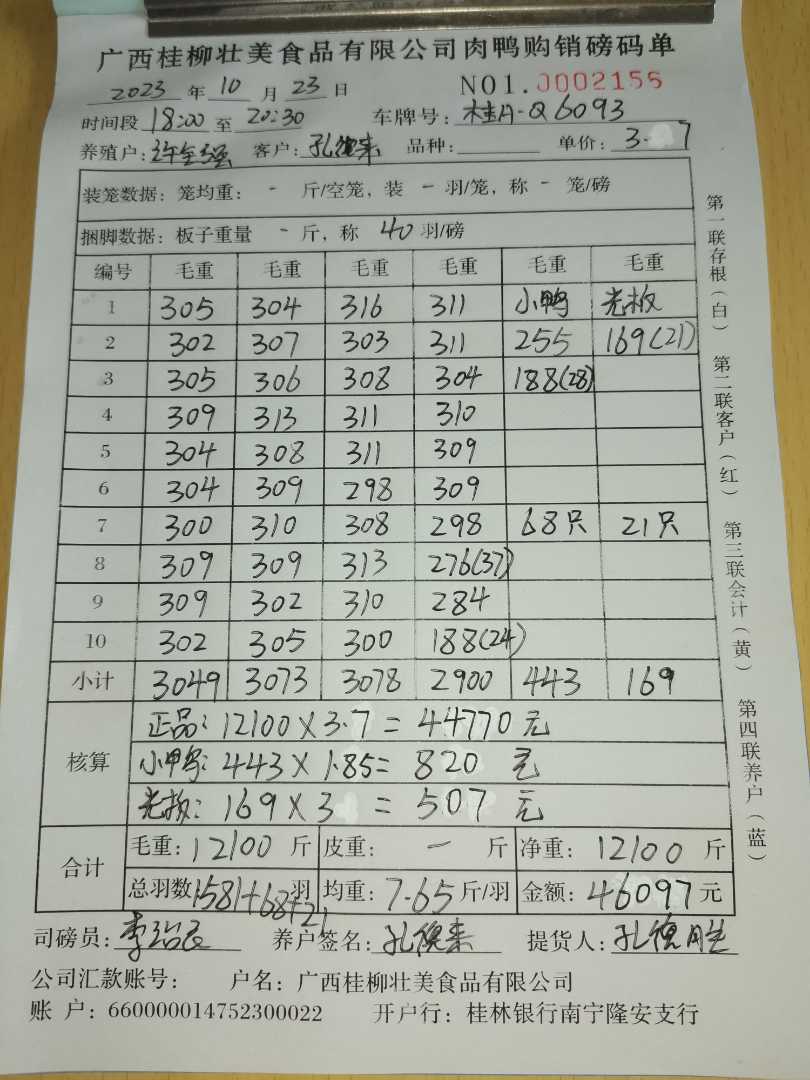 广西桂柳壮美食品有限公司肉鸭购销磅码单
2023 年 10 月 23 日 NO1.0002156
时间段 18:00 至 20:30 车牌号: 桂A-Q6093
养殖户: 许全强 客户: 孔德来 品种: 单价: 3.7
装笼数据: 笼均重: - 斤/空笼, 装 - 羽/笼, 称 - 笼/磅
捆脚数据: 板子重量 - 斤, 称 40 羽/磅
编号 毛重 毛重 毛重 毛重 毛重 毛重
1 305 304 316 311 小鸭 光板
2 302 307 303 311 255 169(21)
3 305 306 308 304 188(28)
4 309 313 311 310
5 304 308 311 309
6 304 309 298 309
7 300 310 308 298 68只 21只
8 309 309 313 276(37)
9 309 302 310 284
10 302 305 300 188(24)
小计 3049 3073 3078 2900 443 169
核算
正品: 12100 X 3.7 = 44770 元
小鸭: 443 X 1.85= 820 元
光板: 169 X 3 = 507 元
合计
毛重: 12100 斤 皮重: - 斤 净重: 12100 斤
总羽数: 1581+68+21 羽 均重: 7.65 斤/羽 金额: 46097 元
司磅员: 养户签名: 孔德来 提货人: 孔德胜
公司汇款账号: 户名: 广西桂柳壮美食品有限公司
账 户: 660000014752300022 开户行: 桂林银行南宁隆安支行
第一联存根(白) 第二联客户(红) 第三联会计(黄) 第四联养户(蓝)